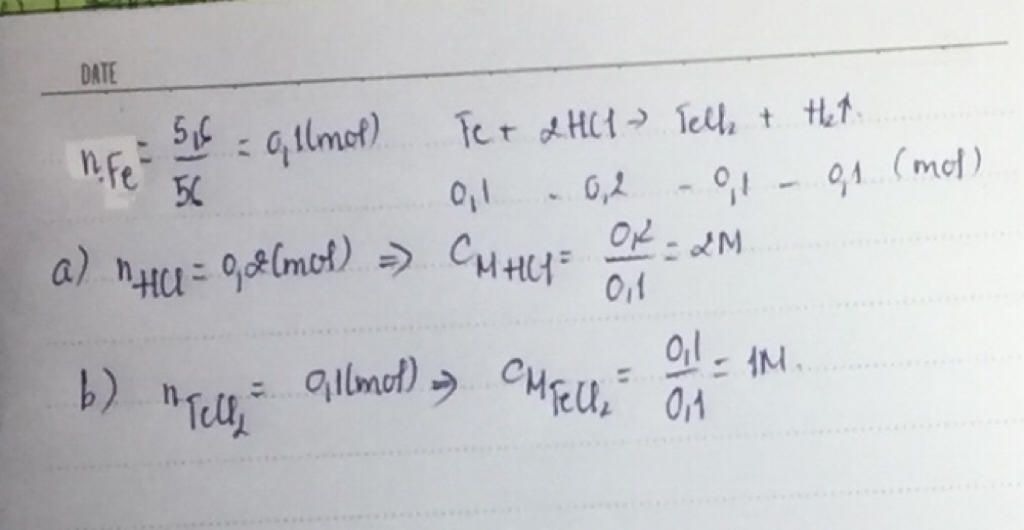 DATE
n Fe = 5,6/56 = 0,1(mol) Fe + 2HCl → FeCl₂ + H₂↑.
0,1 - 0,2 - 0,1 - 0,1 (mol)
a) nHCl = 0,2(mol) ⇒ CM HCl = 0,2/0,1 = 2M
b) nFeCl₂ = 0,1(mol) ⇒ CM FeCl₂ = 0,1/0,1 = 1M.